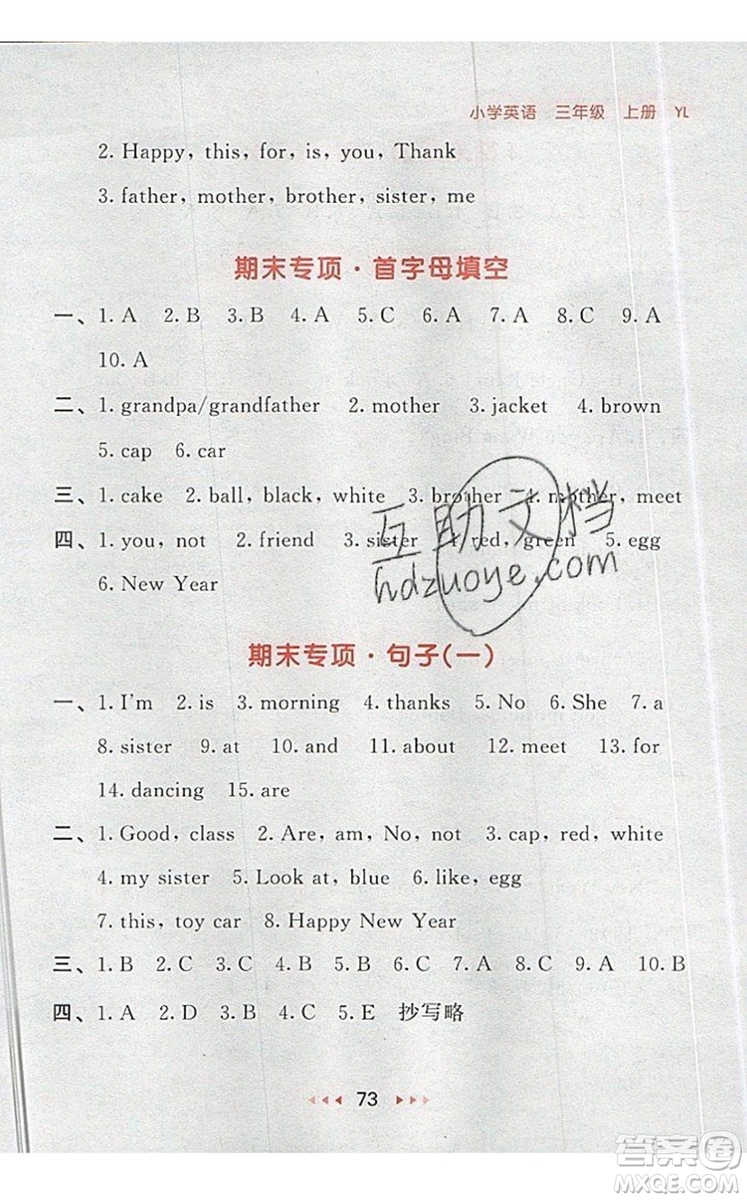 小学英语 三年级 上册 YL
2. Happy, this, for, is, you, Thank
3. father, mother, brother, sister, me
期末专项·首字母填空
一、1. A 2. B 3. B 4. A 5. C 6. A 7. A 8. C 9. A
10. A
二、1. grandpa/grandfather 2. mother 3. jacket 4. brown
5. cap 6. car
三、1. cake 2. ball, black, white 3. brother 4. mother, meet
四、1. you, not 2. friend 3. sister 4. red, green 5. egg
6. New Year
互助文档
hdzuoye.com
期末专项·句子(一)
一、1. I'm 2. is 3. morning 4. thanks 5. No 6. She 7. a
8. sister 9. at 10. and 11. about 12. meet 13. for
14. dancing 15. are
二、1. Good, class 2. Are, am, No, not 3. cap, red, white
4. my sister 5. Look at, blue 6. like, egg
7. this, toy car 8. Happy New Year
三、1. B 2. C 3. C 4. B 5. B 6. A 7. C 8. C 9. A 10. B
四、1. A 2. D 3. B 4. C 5. E 抄写略
73
答案圈
MXQE.COM